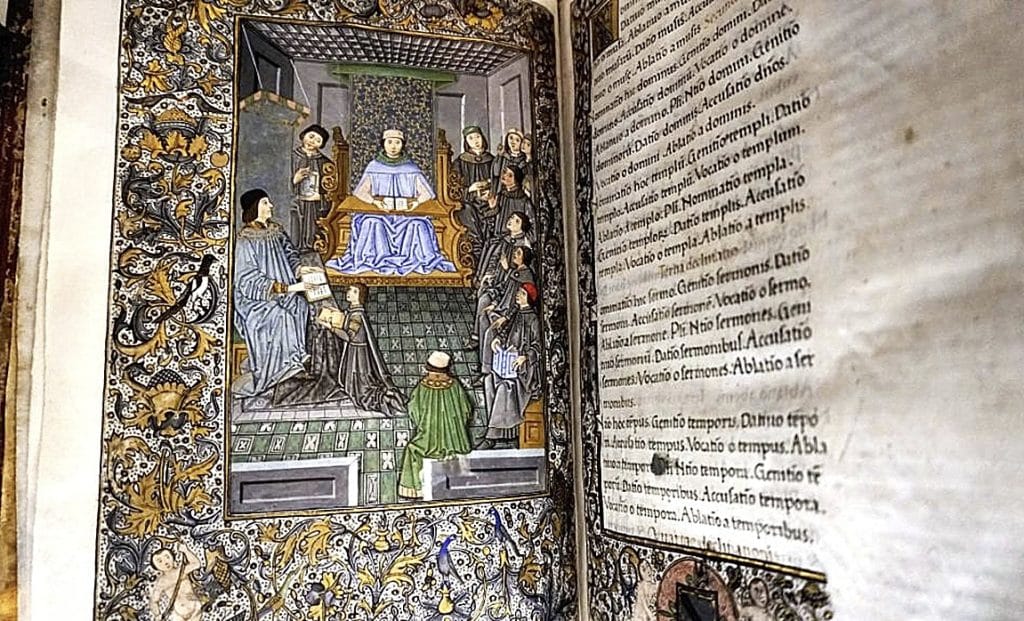 musis. Datio musis.
o muse. Ablatio a musis.
dominus. Genitio domini. Datio
domino. Accusatio Vocatio o domine.
Ablatio a domino. Pli. Ntio domini. Genitio
dominorū. Datio dominis. Accusatio dños.
Vocatio o domini Ablatio a dominis.
minatio hoc templū. Genitio templi. Datio
templo. Accusatio templū. Vocatio o templum.
Ablatio a templo. Pli. Nominatio templa.
Genitio templorꝝ. Datio templis. Accusatio
templa. Vocatio o templa. Ablatio a templis.
Terna declinatio
ominatio hic sermo. Genitio sermonis. Datio
sermoni. Accusatio sermonē. Vocatio o sermo.
Ablatio a sermone. Pli. Ntio sermones. Geni
tio sermonū. Datio sermonibus. Accusatio
sermones. Vocatio o sermones. Ablatio a ser
monibus.
Ntio hoc tēpus. Genitio temporis. Datiuo tēpo
ri. Accusatio tempus. Vocatio o tempus. Abla
tiuo a tempore Pli Ntio tempora. Genitio tē
porū. Datio temporibus. Accusatio tempora.
Vocatio o tempora. Ablatio a temporibus.
Quarta declinatio